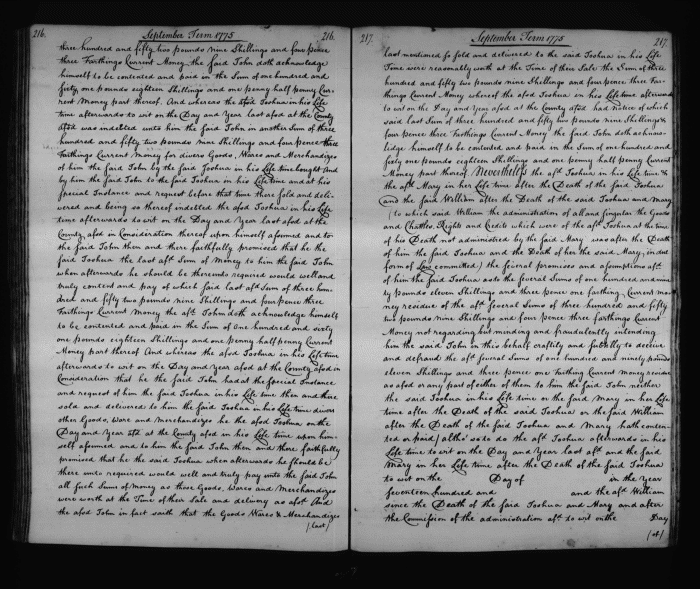 216. September Term 1775 216.
three hundred and fifty two pounds nine Shillings and four pence
three Farthings Current Money the said John doth acknowledge
himself to be contented and paid in the Sum of one hundred and
sixty one pounds eighteen Shillings and one penny half penny Cur-
rent Money part thereof. And whereas the afsd Joshua in his Life
time afterwards to wit on the Day and Year last afsd at the County
afsd was indebted unto him the said John in another Sum of three
hundred and fifty two pounds nine Shillings and four pence three
Farthings Current Money for divers Goods, Wares and Merchandizes
of him the said John by the said Joshua in his Life time bought And
by him the said John to the said Joshua in his Life time and at his
special Instance and request before that time there sold and deli-
vered and being so thereof indebted the afsd Joshua in his Life
time afterwards to wit on the Day and Year last afsd at the
County afsd in Consideration thereof upon himself assumed and to
the said John then and there faithfully promised that he the
said Joshua the last afsd Sum of Money to him the said John
when afterwards he should be thereunto required would well and
truly content and pay of which said last afsd Sum of three hun-
dred and fifty two pounds nine Shillings and four pence three
Farthings Current Money the afsd John doth acknowledge himself
to be contented and paid in the Sum of One hundred and sixty
one pounds eighteen Shillings and one penny half penny Current
Money part thereof And whereas the afsd Joshua in his Life time
afterwards to wit on the Day and Year afsd at the County afsd in
Consideration that he the said John had at the special Instance
and request of him the said Joshua in his Life time then and there
sold and delivered to him the said Joshua in his Life time divers
other Goods, Ware and Merchandizes he the afsd Joshua on the
Day and Year afsd at the County afsd in his Life time upon him-
self assumed and to him the said John then and there faithfully
promised that he the said Joshua when afterwards he should be
there unto required would well and truly pay unto the said John
all such Sums of Money as those Goods, Wares and Merchandizes
were worth at the Time of their Sale and delivery as afsd And
the afsd John in fact saith that the Goods Wares & Merchandizes
(last)
217. September Term 1775 217.
last mentioned so sold and delivered to the said Joshua in his Life
Time were reasonably worth at the Time of their Sale the Sum of three
hundred and fifty two pounds nine Shillings and four pence three Far-
things Current Money whereof the afsd Joshua in his Life time afterward
to wit on the Day and Year afsd at the County afsd had notice of which
said last Sum of three hundred and fifty two pounds nine Shillings &
four pence three Farthings Current Money the said John doth acknow-
ledge himself to be contented and paid in the Sum of one hundred and
sixty one pounds eighteen Shillings and one penny half penny Current
Money part thereof. Nevertheless the afsd Joshua in his Life time &
the afsd Mary in her Life time after the Death of the said Joshua
and the said William after the Death of the said Joshua and Mary
(to which said William the administration of all and singular the Goods
and Chattles, Rights and Credits which were of the afsd Joshua at the time
of his Death not administred by the said Mary was after the Death
of him the said Joshua and the Death of her the said Mary, in due
form of Law committed) the several promises and assumptions afsd
of him the said Joshua as to the several Sums of one hundred and nine-
ty pounds eleven Shillings and three pence one farthing Current Mo-
ney residue of the afsd several Sums of three hundred and fifty
two pounds nine Shillings and four pence three farthings Current
Money not regarding but minding and fraudulently intending
him the said John in this behalf craftily and subtilly to deceive
and defraud the afsd several Sums of one hundred and ninety pounds
eleven Shillings and three pence one Farthing Current Money residue
as afsd or any part of either of them to him the said John neither
the said Joshua in his Life time or the said Mary in her Life
time after the Death of the said Joshua or the said William
after the Death of the said Joshua and Mary hath conten-
ted or paid / altho' so to do the afsd Joshua afterwards in his
Life time to wit on the Day and Year last afsd and the said
Mary in her Life time after the Death of the said Joshua
to wit on the Day of in the Year
seventeen hundred and and the afsd William
since the Death of the said Joshua and Mary and after
the Commission of the administration afsd to wit on the Day
(of)